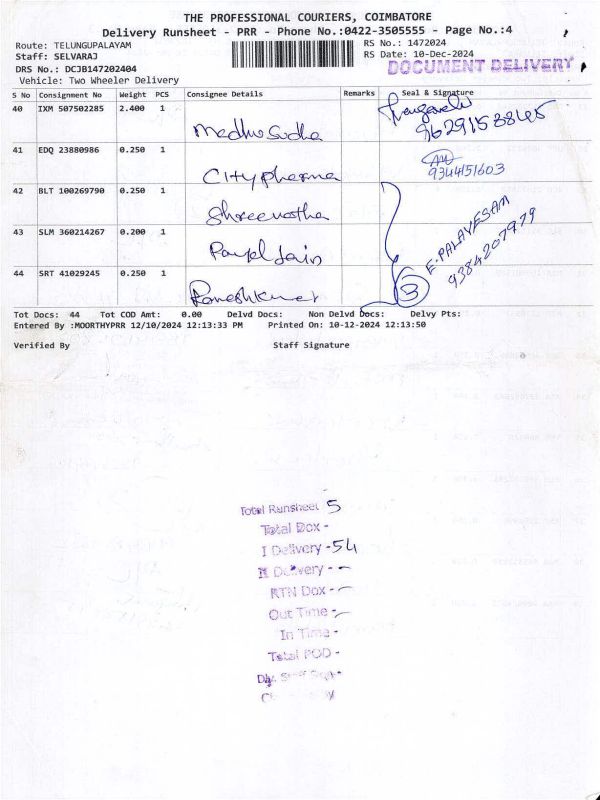 THE PROFESSIONAL COURIERS, COIMBATORE
Delivery Runsheet - PRR - Phone No.:0422-3505555 - Page No.:4
Route: TELUNGUPALAYAM
RS No.: 1472024
Staff: SELVARAJ
RS Date: 10-Dec-2024
DRS No.: DCJB147202404
DOCUMENT DELIVERY
Vehicle: Two Wheeler Delivery
S No Consignment No Weight PCS Consignee Details Remarks Seal & Signature
40 IXM 507502285 2.400 1
Madhu Sudha
9629153845
41 EDQ 23880986 0.250 1
City pharma
9344151603
42 BLT 100269790 0.250 1
Shreevatha
43 SLM 360214267 0.200 1
Payel Jain
E.PALAYESAM
9384207979
44 SRT 41029245 0.250 1
Rameshkumar
3
Tot Docs: 44 Tot COD Amt: 0.00 Delvd Docs: Non Delvd Docs: Delvy Pts:
Entered By :MOORTHYPRR 12/10/2024 12:13:33 PM Printed On: 10-12-2024 12:13:50
Verified By Staff Signature
Total Runsheet 5
Total Dox -
I Delivery - 54
II Delivery -
RTN Dox -
Out Time -
In Time -
Total POD -